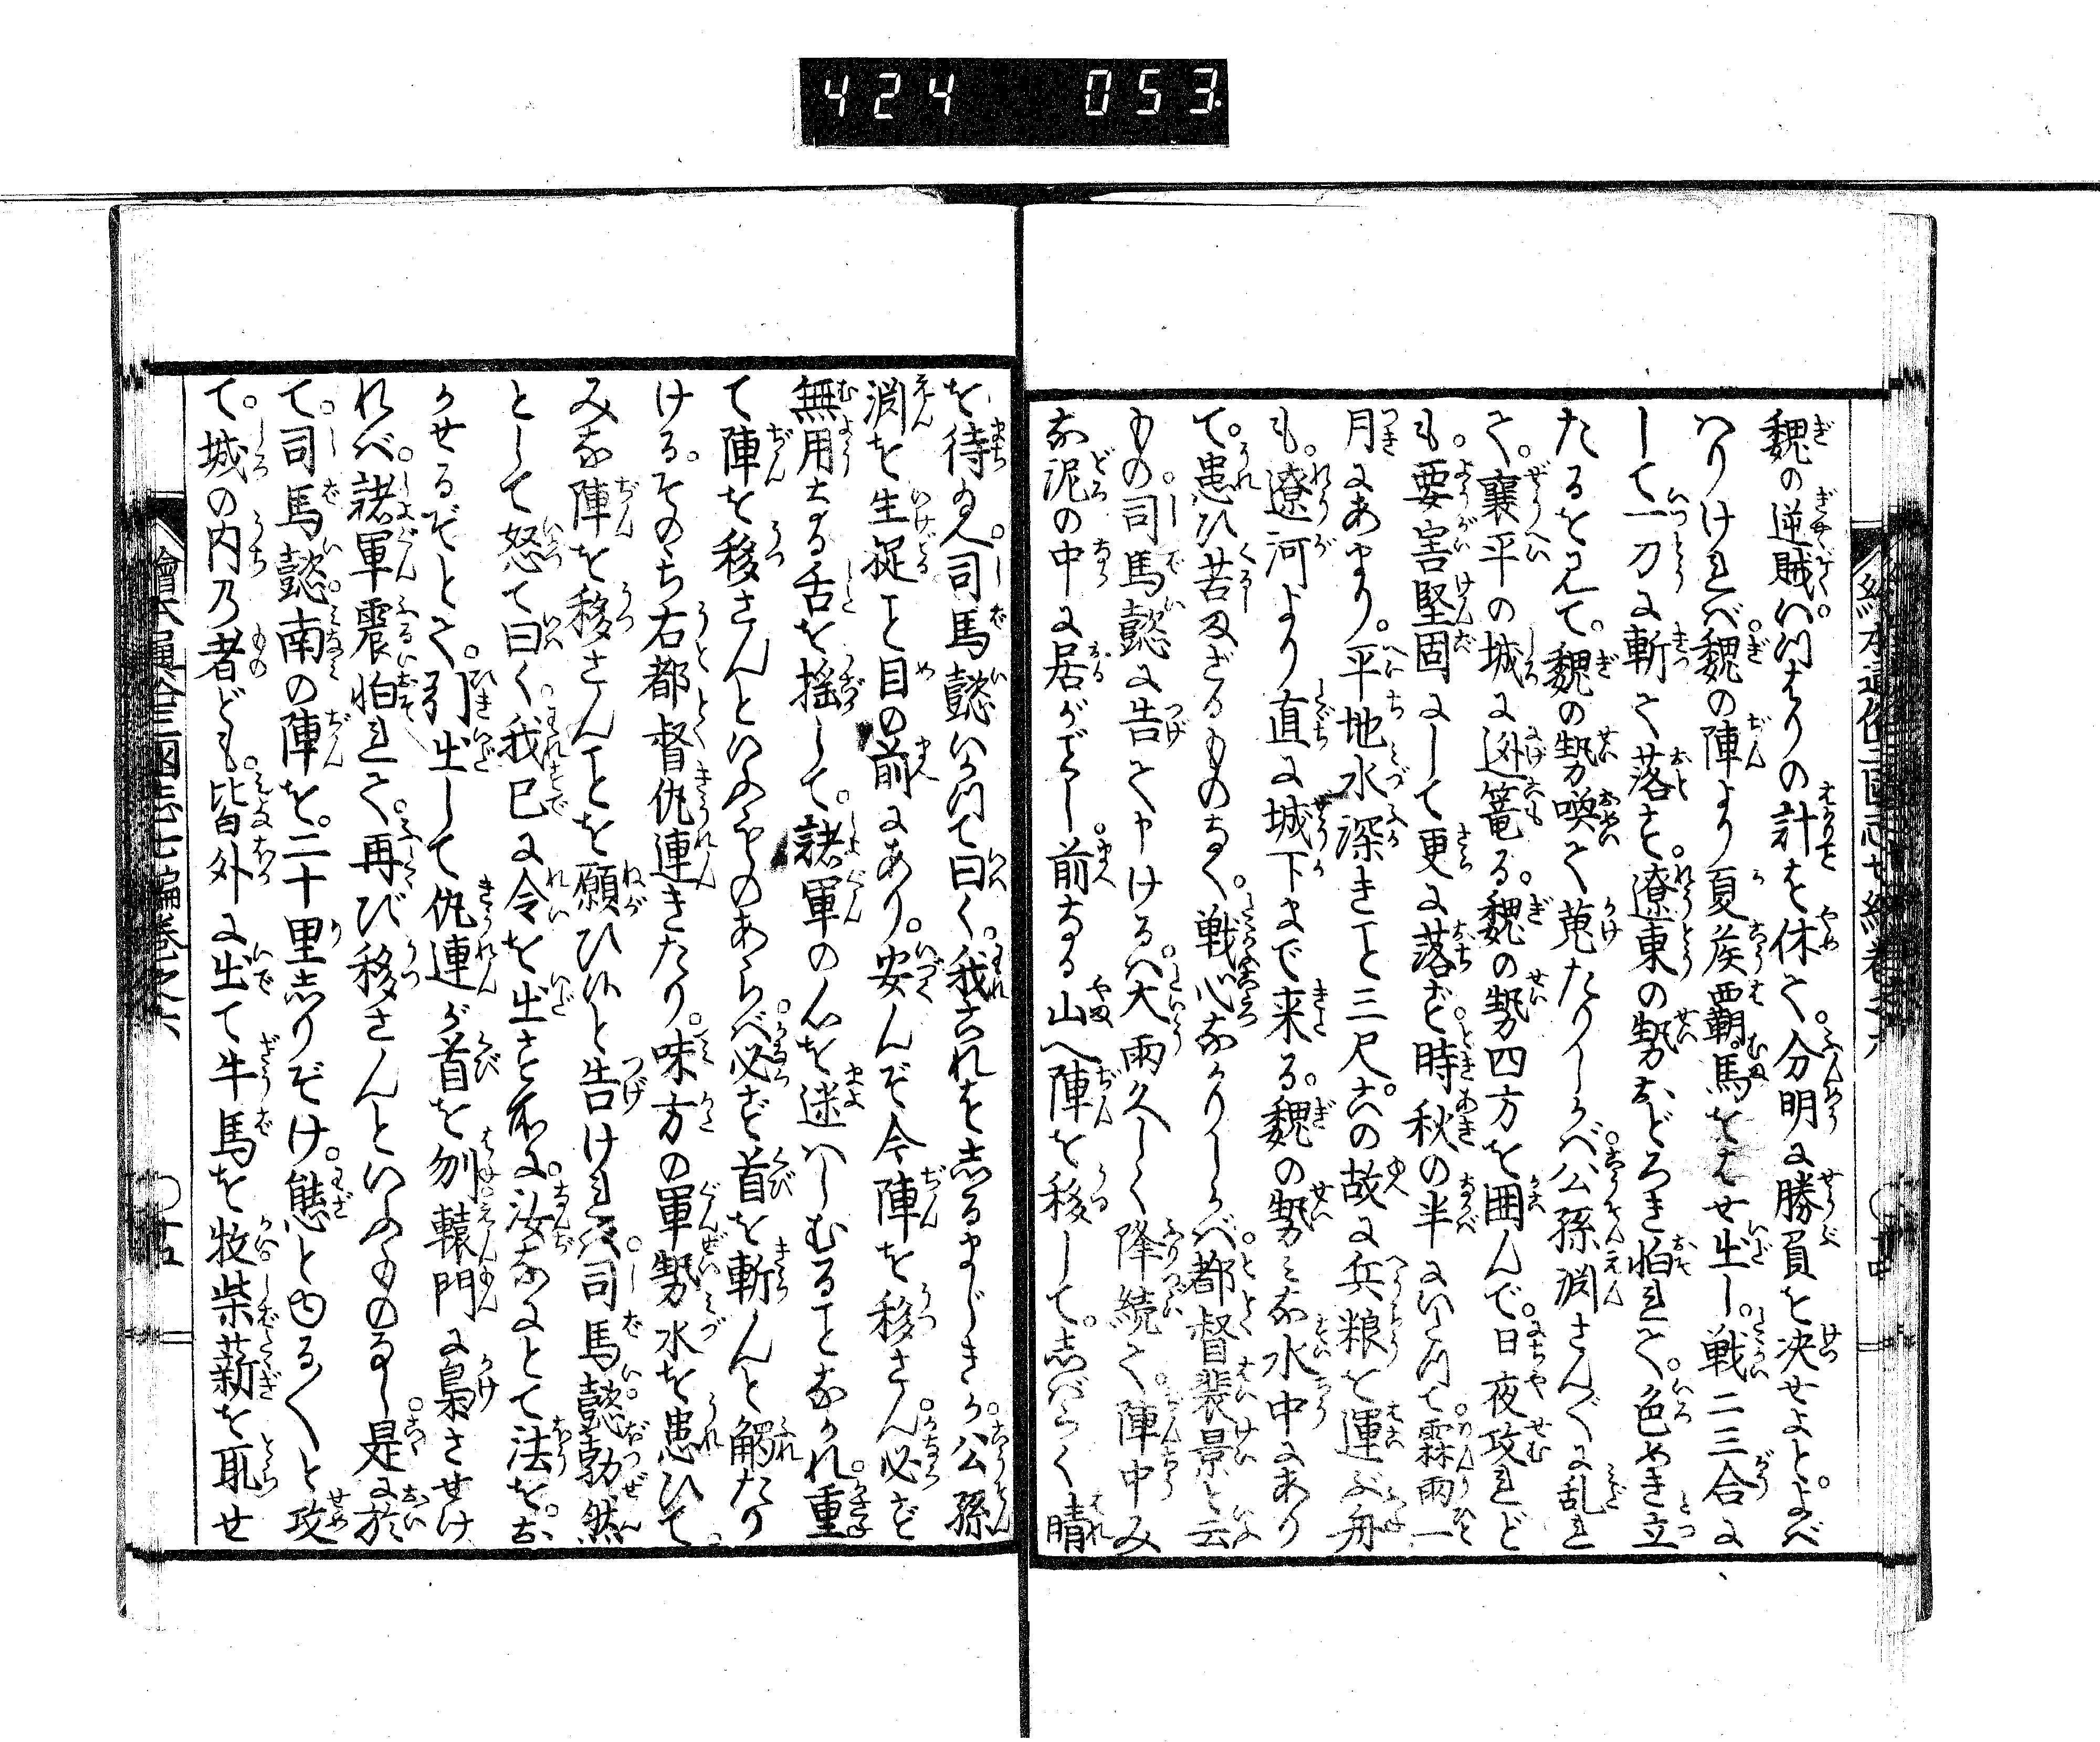 424 053
魏の逆賊。いつはりの計を休て。分明に勝負を決せよと。よべ
はりければ。魏の陣より夏侯覇。馬をはせ出し。戦二三合に
して一刀に斬て落す。遼東の勢おどろき怕れて。色めき立
たるを見て。魏の勢喚て蒐たりしかば。公孫渊さんぐに乱れ
て。襄平の城に迯篭る。魏の勢四方を囲んで。日夜攻れど
も。要害堅固にして更に落ず。時秋の半にいたつて。霖雨一
月にあまり。平地水深きこと三尺。この故に兵粮を運ぶ舟
も。遼河より直に城下まで来る。魏の勢みな水中にあり
て。患ひ苦まざるものなく。戦心なかりしかば。都督裴景と云
もの。司馬懿に告て申けるは。大雨久しく降続て。陣中み
な泥の中に居がたし。前なる山へ陣を移して。志ばらく晴
を待給へ。司馬懿いかつて曰く。我これを志るまじきか。公孫
渊を生捉こと目の前にあり。安んぞ今陣を移さん。必ず
無用なる舌を揺して。諸軍の心を迷はしむることなかれ。重
て陣を移さんといふものあらば。必ず首を斬んと觸たり
ける。そのち右都督仇連きたり。味方の軍勢水を患ひて。
みな陣を移さんことを願ひ候と告ければ。司馬懿勃然
として怒て曰く。我已に令を出す処に。汝なにとて法を。お
かせるぞとて。引出して仇連が首を刎。轅門に梟させけ
れば。諸軍震怕れて。再び移さんといふものなし。是に於
て。司馬懿南の陣を。二十里志りぞけ。態と内るくと攻
て。城の内乃者ども。皆外に出て牛馬を牧。柴薪を取せ
繪本通俗三國志七編巻之六